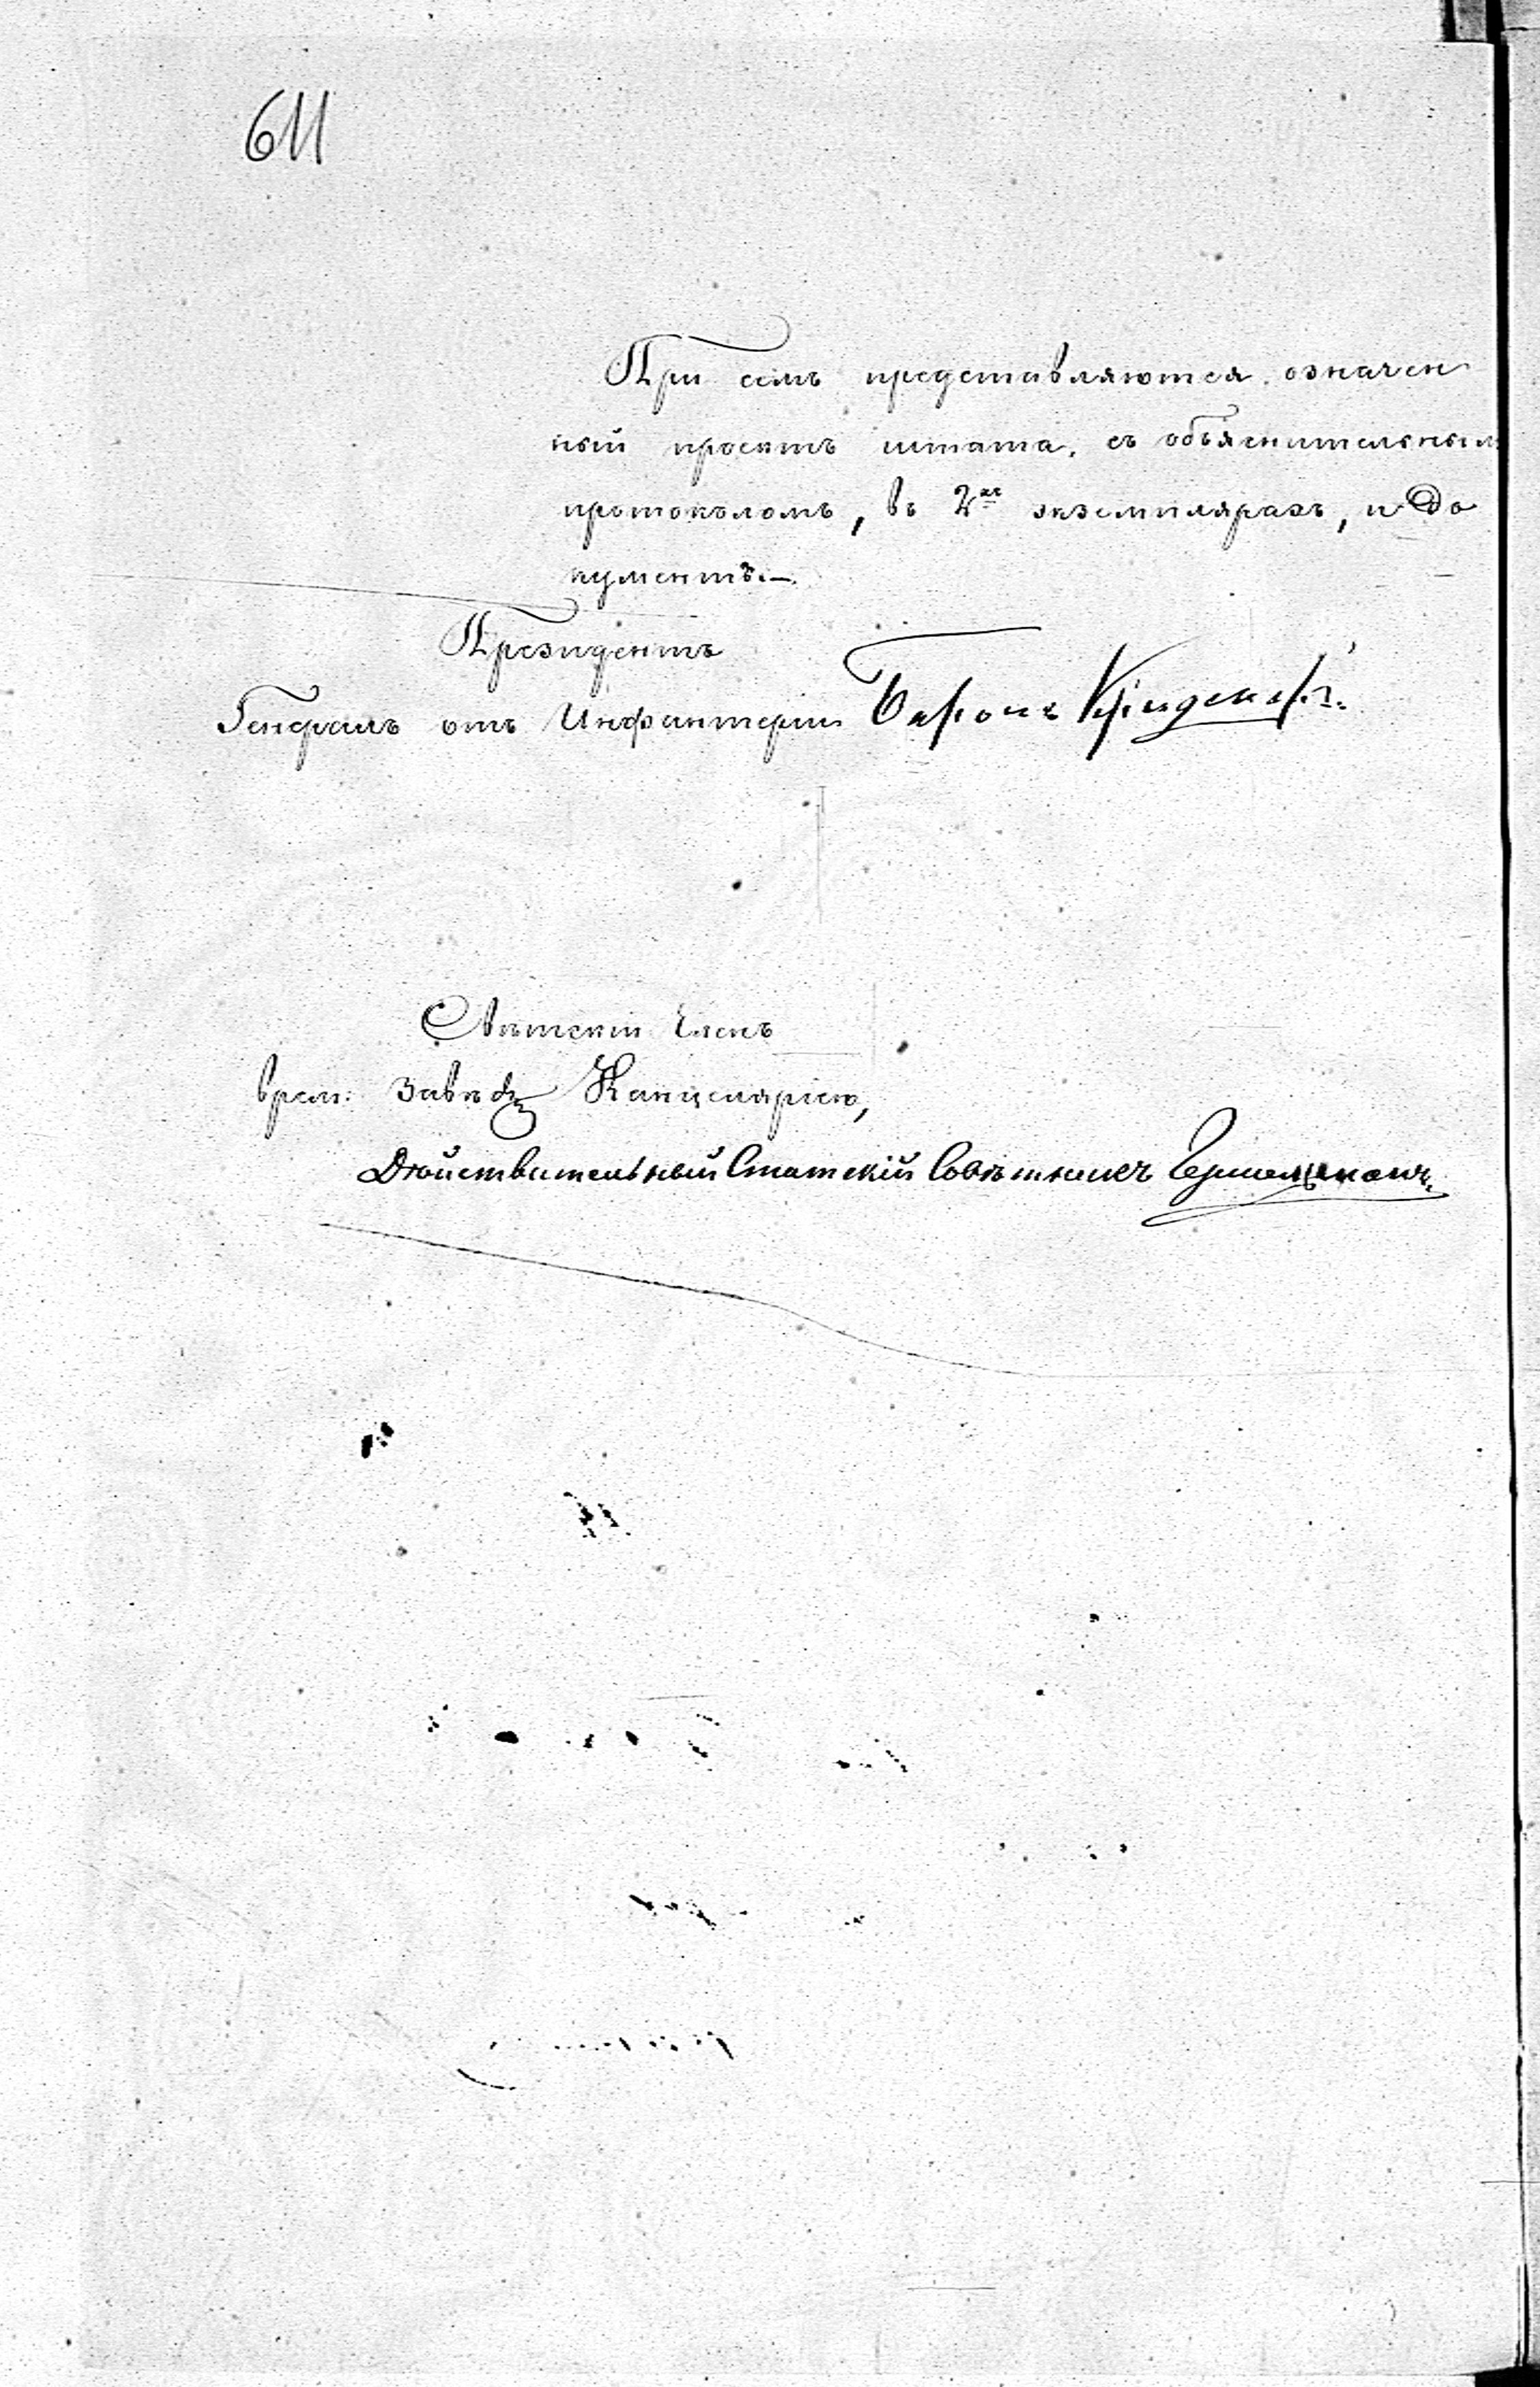 611
При семъ представляются означен
ный проектъ штата, съ объяснительнымъ
протоколомъ, въ 2хъ экземплярахъ, и до
кументъ.—
Президентъ
Генералъ отъ Инфантеріи Баронъ Криденеръ.
Свѣтскій Членъ
врем: завѣдщ Канцеляріею,
Дѣйствительный Статскій Совѣтникъ